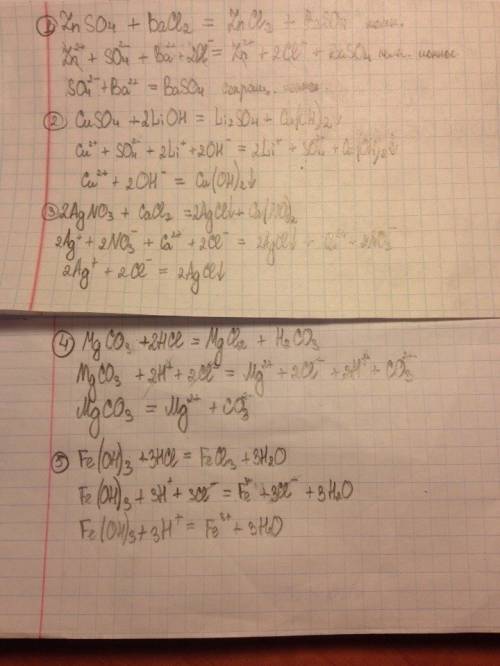 ① ZnSO4 + BaCl2 = ZnCl2 + BaSO4
Zn²⁺ + SO4²⁻ + Ba²⁺ + 2Cl⁻ = Zn²⁺ + 2Cl⁻ + BaSO4 ионное
SO4²⁻ + Ba²⁺ = BaSO4 сокращ.
② CuSO4 + 2LiOH = Li2SO4 + Cu(OH)2↓
Cu²⁺ + SO4²⁻ + 2Li⁺ + 2OH⁻ = 2Li⁺ + SO4²⁻ + Cu(OH)2↓
Cu²⁺ + 2OH⁻ = Cu(OH)2↓
③ 2AgNO3 + CaCl2 = 2AgCl↓ +
2Ag⁺ + 2NO3⁻ + Ca²⁺ + 2Cl⁻ = 2AgCl↓ + Ca²⁺ + 2NO3⁻
2Ag⁺ + 2Cl⁻ = 2AgCl↓
④ MgCO3 + 2HCl = MgCl2 + H2CO3
MgCO3 + 2H⁺ + 2Cl⁻ = Mg²⁺ + 2Cl⁻ + 2H⁺ + CO3²⁻
MgCO3 = Mg²⁺ + CO3²⁻
⑤ Fe(OH)3 + 3HCl = FeCl3 + 3H2O
Fe(OH)3 + 3H⁺ + 3Cl⁻ = Fe³⁺ + 3Cl⁻ + 3H2O
Fe(OH)3 + 3H⁺ = Fe³⁺ + 3H2O